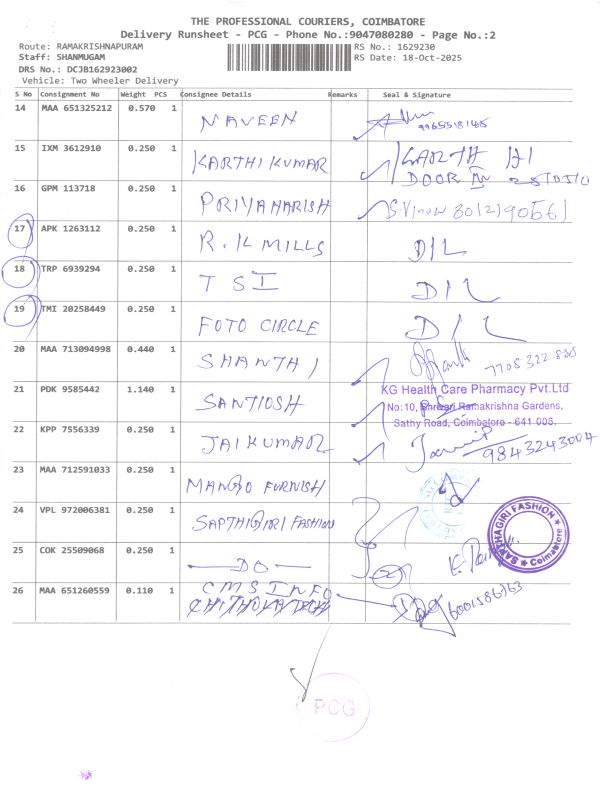 THE PROFESSIONAL COURIERS, COIMBATORE
Delivery Runsheet - PCG - Phone No.:9047080280 - Page No.:2
Route: RAMAKRISHNAPURAM RS No.: 1629230
Staff: SHANMUGAM RS Date: 18-Oct-2025
DRS No.: DCJB162923002
Vehicle: Two Wheeler Delivery
S No Consignment No Weight PCS Consignee Details Remarks Seal & Signature
14 MAA 651325212 0.570 1 NAVEEN
15 IXM 3612910 0.250 1 KARTHI KUMAR KARTHI
DOOR
16 GPM 113718 0.250 1 PRIYAHARISH
17 APK 1263112 0.250 1 R.K MILLS D/L
18 TRP 6939294 0.250 1 T S I D/L
19 TMI 20258449 0.250 1 FOTO CIRCLE D/L
20 MAA 713094998 0.440 1 SHANTHI
21 PDK 9585442 1.140 1 SANTHOSH KG Health Care Pharmacy Pvt.Ltd
No:10, Ramakrishna Gardens,
Sathy Road, Coimbalore - 641 006.
22 KPP 7556339 0.250 1 JAI KUMAR 9843243004
23 MAA 712591033 0.250 1 MANGO FURNISH
24 VPL 972006381 0.250 1 SAPTHAGIRI FASHION SAPTHAGIRI FASHION Coimbatore
25 COK 25509068 0.250 1 DO
26 MAA 651260559 0.110 1 CMS INFO
PCG